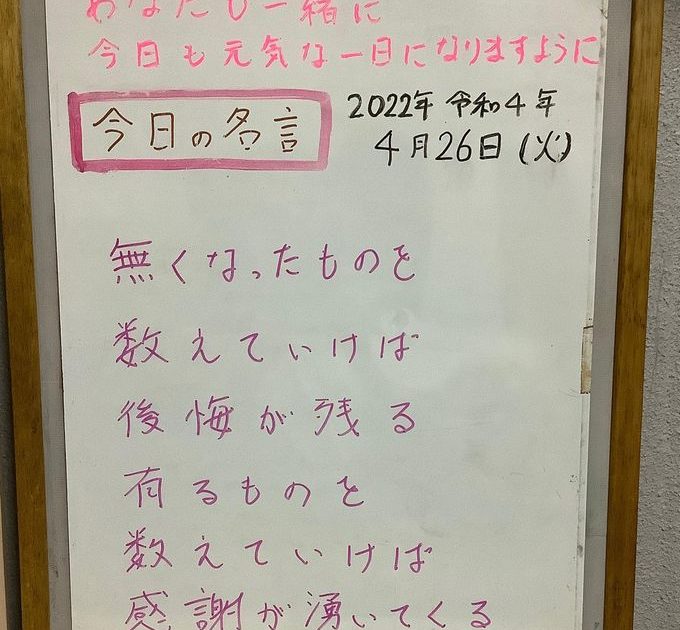 あなたも一緒に
今日も元気な一日になりますように
今日の名言
2022年 令和4年
4月26日(火)
無くなったものを
数えていけば
後悔が残る
有るものを
数えていけば
感謝が湧いてくる